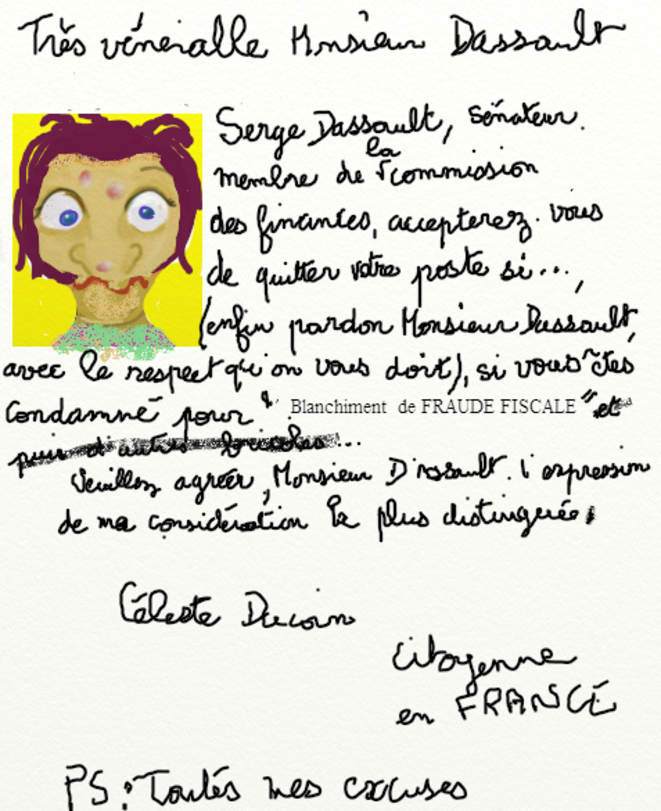 Très vénérable Monsieur Dassault
Serge Dassault, sénateur.
membre de la commission
des finances, accepterez-vous
de quitter votre poste si...,
(enfin pardon Monsieur Dassault,
avec le respect qu'on vous doit), si vous êtes
condamné pour " Blanchiment de FRAUDE FISCALE " et
puis d'autres bricoles...
Veuillez agréer, Monsieur D'assault. l'expression
de ma considération la plus distinguée,
Céleste Ducoin
citoyenne
en FRANCE
PS : Toutes mes excuses